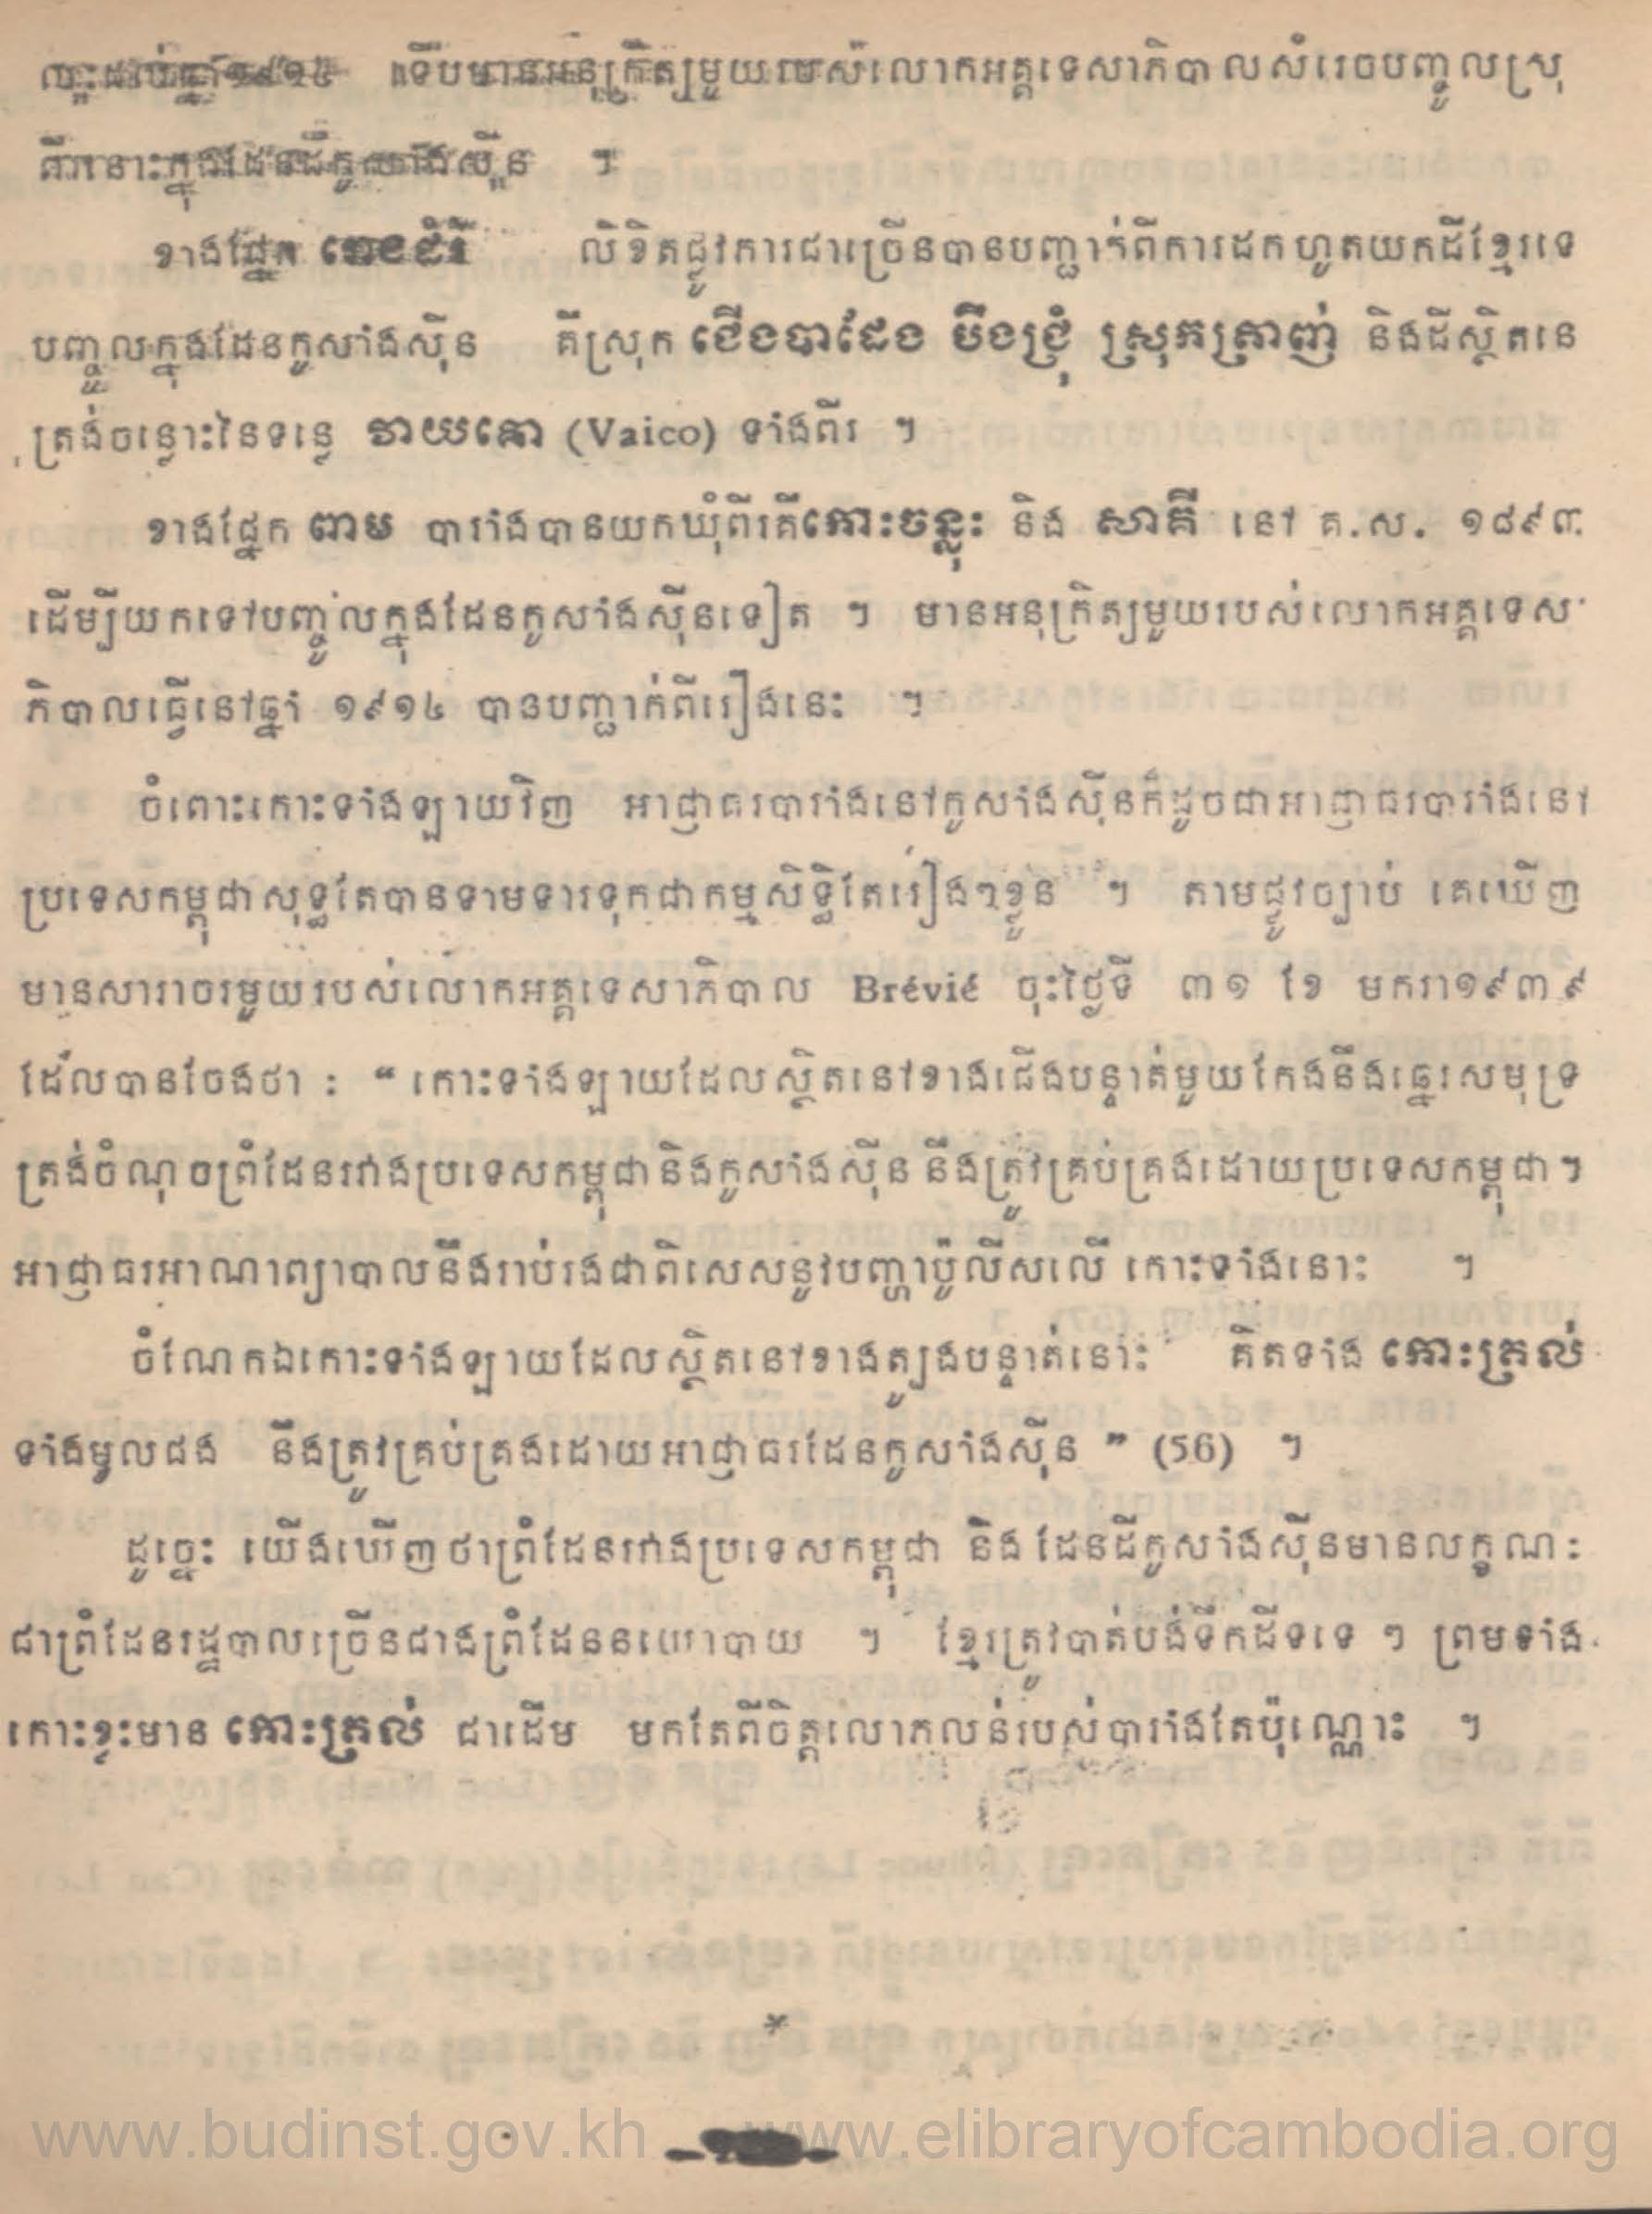 លុះដល់ឆ្នាំ១៩១៤ ទើបមានអនុក្រឹត្យមួយរបស់លោកអគ្គទេសាភិបាលសំរេចបញ្ចូលស្រុ
គីរនោះក្នុងដែនដីកូសាំងស៊ីន ។
ខាងផ្នែក លិខិតផ្លូវការជាច្រើនបានបញ្ជាក់ពីការដកហូតយកដីខ្មែរទេ
បញ្ចូលក្នុងដែនកូសាំងស៊ីន គឺស្រុក ជើងបាដែង បឹងជ្រុំ ស្រុកត្រាញ់ និងដីស្ថិតនេ
ត្រង់ចន្លោះនៃទន្លេ វាយកោ (Vaico) ទាំងពីរ ។
ខាងផ្នែក ពាម បារាំងបានយកឃុំពីរគឺកោះចន្លុះ និង សាគី នៅ គ.ស. ១៨៩៣
ដើម្បីយកទៅបញ្ចូលក្នុងដែនកូសាំងស៊ីនទៀត ។ មានអនុក្រិត្យមួយរបស់លោកអគ្គទេស
ភិបាលធ្វើនៅឆ្នាំ ១៩១៤ បានបញ្ជាក់ពីរឿងនេះ ។
ចំពោះកោះទាំងឡាយវិញ អាជ្ញាធរបារាំងនៅកូសាំងស៊ីនក៏ដូចជាអាជ្ញាធរបារាំងនៅ
ប្រទេសកម្ពុជាសុទ្ធតែបានទាមទារទុកជាកម្មសិទ្ធិតែរៀងៗខ្លួន ។ តាមផ្លូវច្បាប់ គេឃើញ
មានសារាចរមួយរបស់លោកអគ្គទេសាភិបាល Brévié ចុះថ្ងៃទី ៣១ ខែ មករា១៩៣៩
ដែលបានចែងថា : “ កោះទាំងឡាយដែលស្ថិតនៅខាងជើងបន្ទាត់មួយកែងនឹងឆ្នេរសមុទ្រ
ត្រង់ចំណុចព្រំដែនរវាងប្រទេសកម្ពុជានិងកូសាំងស៊ីន នឹងត្រូវគ្រប់គ្រងដោយប្រទេសកម្ពុជា។
អាជ្ញាធរអាណាព្យាបាលនឹងរាប់រងជាពិសេសនូវបញ្ហាប៉ូលីសលើ កោះទាំងនោះ ។
ចំណែកឯកោះទាំងឡាយដែលស្ថិតនៅខាងត្បូងបន្ទាត់នោះ គិតទាំង កោះត្រល់
ទាំងមូលផង នឹងត្រូវគ្រប់គ្រងដោយអាជ្ញាធរដែនកូសាំងស៊ីន ” (56) ។
ដូច្នេះ យើងឃើញថាព្រំដែនរវាងប្រទេសកម្ពុជា និង ដែនដីកូសាំងស៊ីនមានលក្ខណៈ
ជាព្រំដែនរដ្ឋបាលច្រើនជាងព្រំដែននយោបាយ ។ ខ្មែរត្រូវបាត់បង់ទឹកដីទទេ ៗ ព្រមទាំង
កោះខ្លះមាន កោះត្រល់ ជាដើម មកតែពីចិត្តលោភលន់របស់បារាំងតែប៉ុណ្ណោះ ។
*
www.budinst.gov.kh www.elibraryofcambodia.org